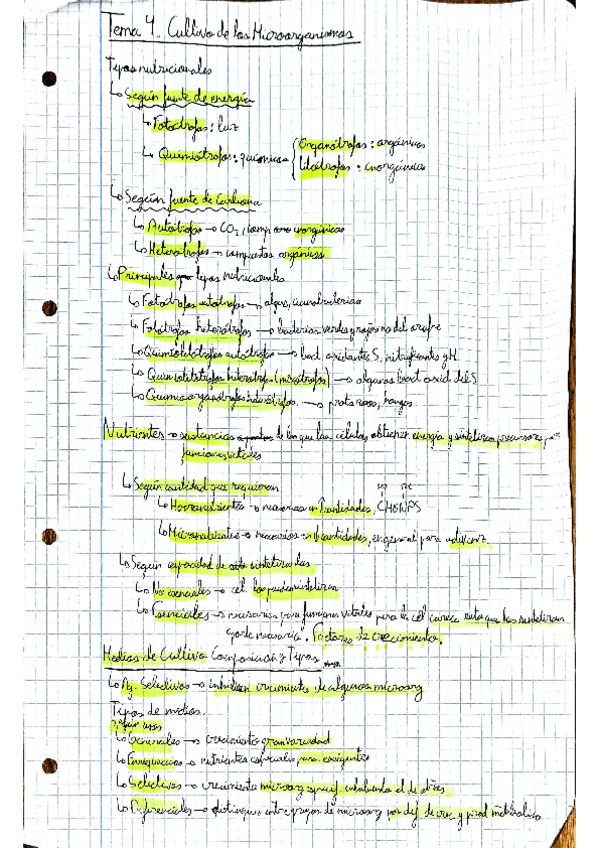 Tema 4. Cultivo de los Microorganismos
Tipos nutricionales
↳ Según fuente de energía
↳ Fotótrofos: luz
↳ Quimiótrofos: químicas { Organótrofos: orgánicas
Litótrofos: inorgánicas
↳ Según fuente de Carbono
↳ Autótrofos → CO2, comp inorgánicos
↳ Heterótrofos → compuestos orgánicos
↳ Principales tipos nutricionales
↳ Fotótrofos autótrofos → algas, cianobacterias
↳ Fotótrofos heterótrofos → bacterias verdes y rojas no del azufre
↳ Quimiolitótrofos autótrofos → bact. oxidantes S, nitrificantes y H
↳ Quimiolitótrofos heterótrof. (mixótrofos) → algunas bact oxid. del S
↳ Quimiorganótrofos heterótrofos. → protozoos, hongos.
Nutrientes → sustancias de los que las células obtienen energía y sintetizan precursores
funciones vitales
↳ Según cantidad que requieran
↳ Macronutrientes → necesarios en ↑ cantidades, CHONPS
↳ Micronutrientes → necesarios ↓ cantidades, en general para
↳ Según capacidad de sintetizarlas
↳ No esenciales → cél. los pueden sintetizar
↳ Esenciales → necesarios para funciones vitales pero la cél carece ruta que los sintetizan
Factores de crecimiento.
Medios de Cultivo Composición y Tipos
↳ Ag. Selectivos → inhiben crecimiento de algunos microorg
Tipos de medios.
Según usos
↳ Generales → crecimiento gran variedad
↳ Enriquecidos → nutrientes especiales para exigentes
↳ Selectivos → crecimiento microorg específ. inhibiendo el de otros
↳ Diferenciales → distinguen entre grupos de microorg por dif. de crec y prod metabólico